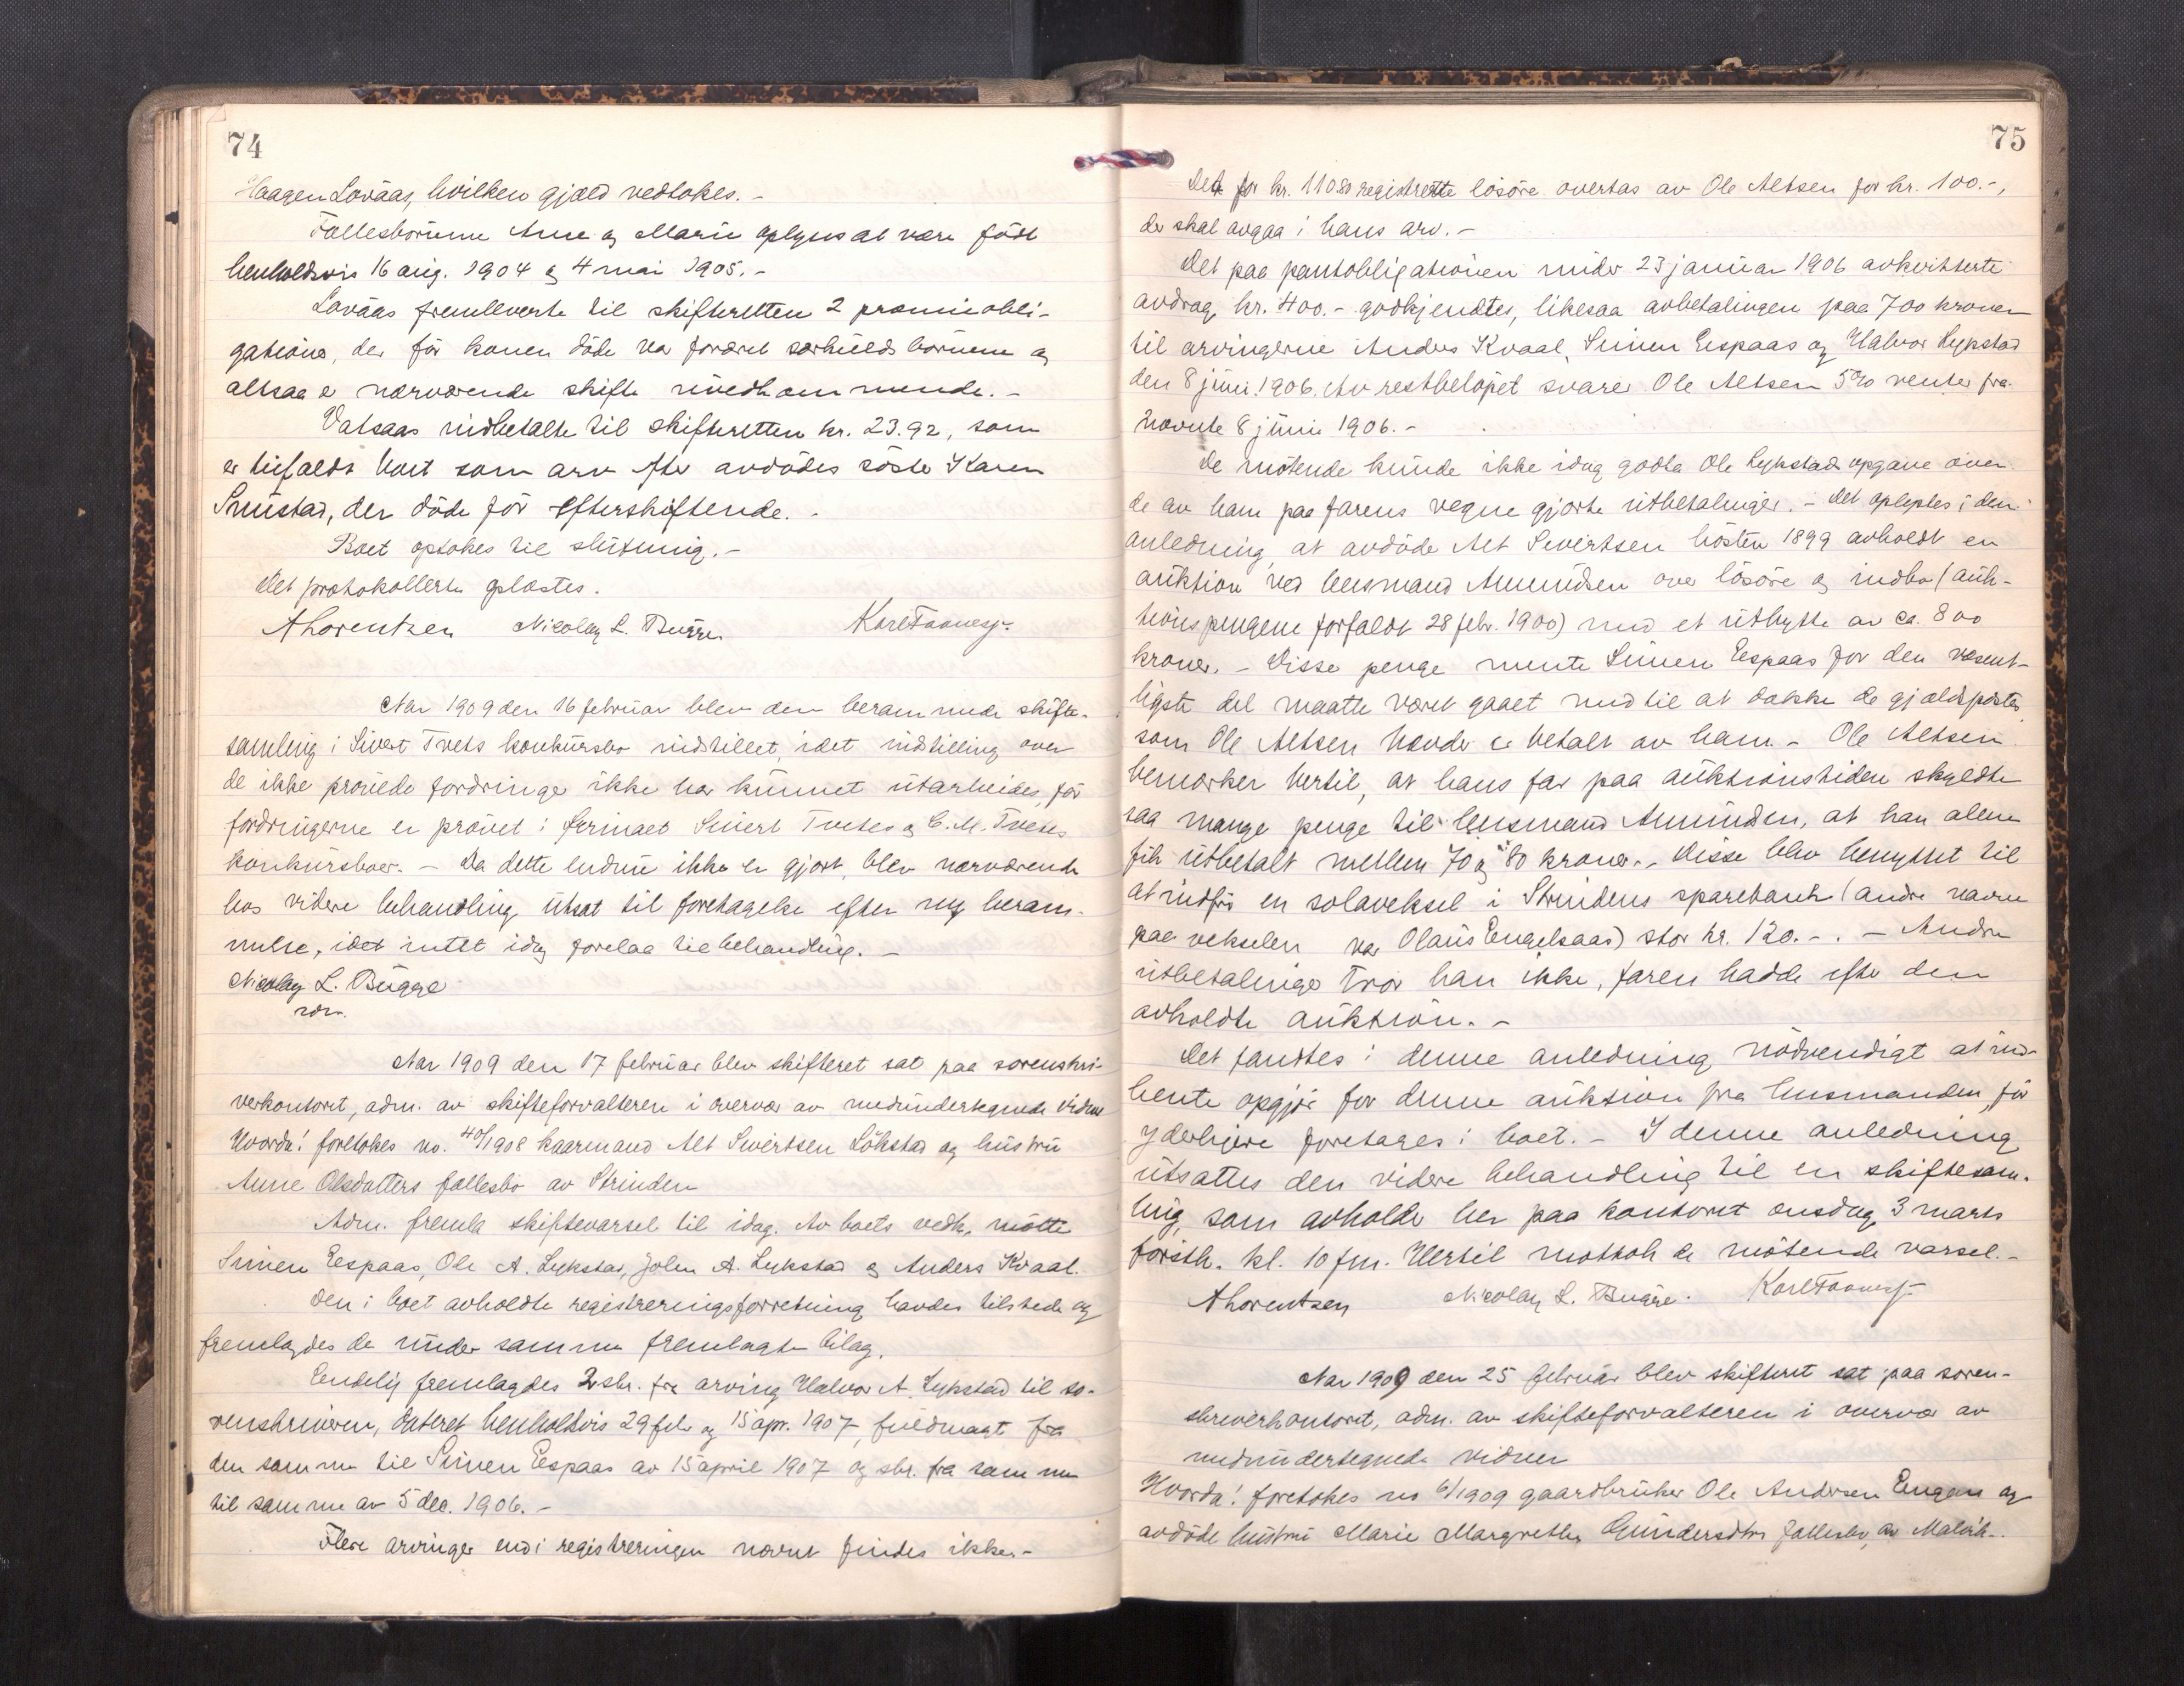 74
Haagen Lovaas, hvilken gjæld vedtokes. -
Fællesbørnene Anne og Marie oplyses at være født
henholdsvis 16 aug. 1904 og 4 mai 1905. -
Lovaas fremleverte til skifteretten 2 præmieobli-
gationer, der før konen døde var foræret særkuldsbørnene og
altsaa er nærværende skifte uvedkommende. -
Vatsaas indbetalte til skifteretten kr. 23.92, som
er tilfaldt boet som arv efter avdødes søster Karen
Smistad, der døde før efterskiftende. -
Boet optokes til slutning. -
Det protokollerte oplæstes.
A Lorentzen Nicolay L. Bugge
Aar 1909 den 16 februar blev den berammede skifte-
samling i Sivert Tvets konkursbo indstillet, idet indstilling over
de ikke prøvede fordringer ikke har kunnet utarbeides, før
fordringerne er prøvet i firmaet Sivert Tvetes og C. M. Tvetes
konkursboer. - Da dette endnu ikke er gjort, blev nærværende
bos videre behandling utsat til foretagelse efter ny beram-
melse, idet intet idag forelaa til behandling. -
Nicolay L. Bugge
Aar 1909 den 17 februar blev skifteret sat paa sorenskri-
verkontoret, adm. av skifteforvalteren i overvær av medundertegnede vidner
Hvorda! foretokes no. 40/1908 kaarmand Alt Sivertsen Lökstad og hustru
Anne Olsdatters fællesbo av Strinden
Adm. fremla skiftevarsel til idag. Av boets vedk. mötte
Simen Eespaas, Ole A. Lykstad, John A. Lykstad og Anders Kvaal.
Den i boet avholdte registreringsforretning havdes tilstede og
fremlagdes de under samme fremlagte bilag.
Endelig fremlagdes 2 skr. fra arving Halvor A. Lykstad til so-
renskriveren, dateret henholdsvis 29 febr og 15 apr. 1907, fuldmagt fra
den samme til Simen Eespaas av 15 april 1907 og skr. fra samme
til samme av 5 dec. 1906. -
Flere arvinger end i registreringen nævnt findes ikke. -
75
Det for kr. 110.80 registrerte lösöre overtas av Ole Altsen for kr. 100.-,
der skal avgaa i hans arv. -
Det paa pantobligationen under 23 januar 1906 avkvitterte
avdrag, kr. 400.- godkjendtes, likesaa avbetalingen paa 700 kroner
til arvingerne Anders Kvaal, Simen Eespaas og Halvor Lykstad
den 8 juni 1906. Av restbelöpet svarer Ole Altsen 5% renter fra
nævnte 8 juni 1906. -
De mötende kunde ikke idag godta Ole Lykstads opgave over
de av ham paa farens vegne gjorte utbetalinger. - Det oplystes i den
anledning, at avdöde Alt Sivertsen hösten 1899 avholdt en
auktion ved lensmand Amundsen over lösöre og indbo (auk-
tionspengene forfaldt 28 febr. 1900) med et utbytte av ca. 800
kroner. - Disse penge mente Simen Eespaas for den væsent-
ligste del maatte været gaaet med til at dække de gjældsposter
som Ole Altsen hævder er betalt av ham. - Ole Altsen
bemærker hertil, at hans far paa auktionstiden skyldte
saa mange penge til lensmand Amundsen, at han alene
fik utbetalt mellem 70 og 80 kroner. - Disse blev benyttet til
at indfri en solaveksel i Strindens sparebank (andre navne
paa vekselen var Olaus Engelsaas) stor kr. 120.-. - Andre
utbetalinger tror han ikke, faren hadde efter den
avholdte auktion. -
Det fandtes i denne anledning nödvendigt at ind-
hente opgjör for denne auktion fra lensmanden, för
yderligere foretages i boet. - I denne anledning
utsattes den videre behandling til en skiftesam-
ling, som avholdes her paa kontoret onsdag 3 marts
förstk. kl. 10 fm. Hertil mottok de mötende varsel. -
A Lorentzen Nicolay L. Bugge.
Aar 1909 den 25 februar blev skifteret sat paa soren-
skriverkontoret, adm. av skifteforvalteren i overvær av
medundertegnede vidner
Hvorda! foretokes no 6/1909 gaardbruker Ole Andersen Engan og
avdöde hustru Marie Margrethe Gundersdtrs fællesbo, av Malvik.